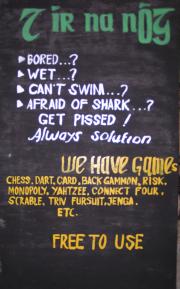 Tír na nÓg
BORED...?
WET...?
CAN'T SWIM...?
AFRAID OF SHARK...?
GET PISSED !
Always solution
We HAVE GAMes
CHESS, DART, CARD, BACK GAMMON, RISK,
MONOPOLY, YAHTZEE, CONNECT FOUR,
SCRABLE, TRIV PURSUIT, JENGA.
ETC.
FREE TO USE